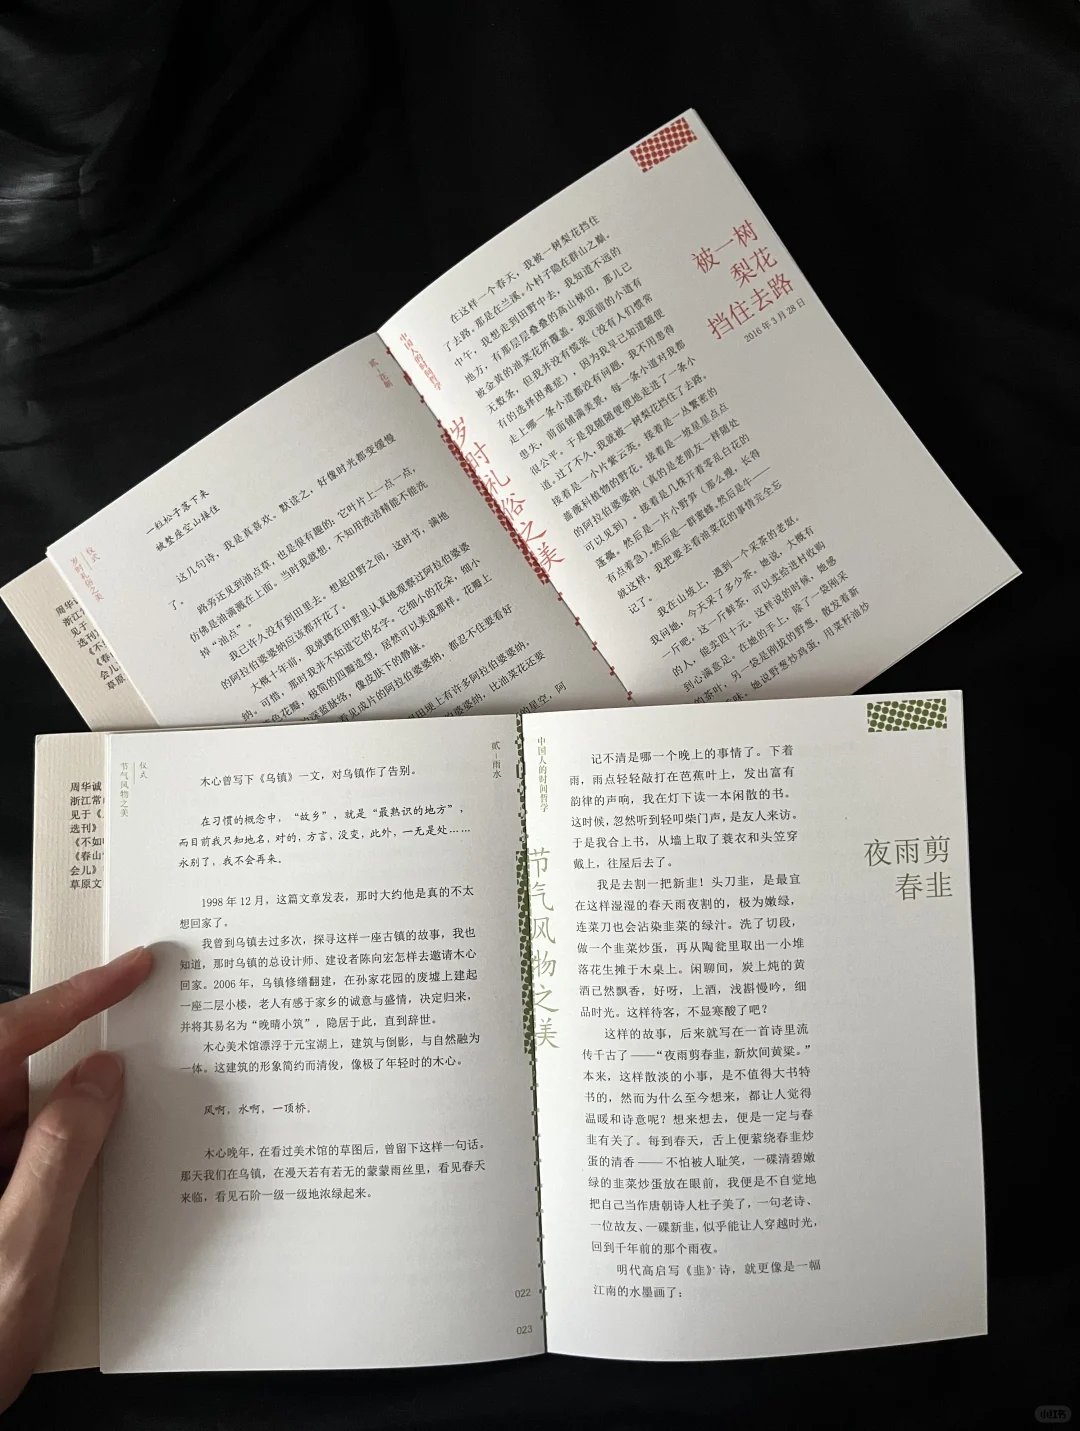 被一树
梨花
挡住去路
2016年3月28日
中国人的时间哲学
岁时礼俗之美
在这样一个春天，我被一树梨花挡住
了去路。那是在兰溪。小村子隐在群山之巅。
中午，我想走到田野中去，我知道不远的
地方，有那层层叠叠的高山梯田，那儿已
被金黄的油菜花所覆盖。我面前的小道有
无数条，但我并没有慌张（没有人们惯常
有的选择困难症），因为我早已知道随便
走上哪一条小道都没有问题，我不用患得
患失，前面铺满美景，每一条小道对我都
很公平。于是我随随便便地走进了一条小
道。过了不久，我就被一树梨花挡住了去路。
接着是一小片紫云英。接着是一丛繁密的
蔷薇科植物的野花。接着是一坡星星点点
的阿拉伯婆婆纳（真的是老朋友一样随处
可以见到）。接着是几株开着零乱白花的
蓬蘽。然后是一片小野笋（那么瘦，长得
有点着急）。然后是一群蜜蜂。然后是牛——
就这样，我把要去看油菜花的事情完全忘
记了。
我在山坡上，遇到一个采茶的老妪。
我问她，今天采了多少茶。她说，大概有
一斤吧。这一斤鲜茶，可以卖给进村收购
的人，能卖四十元。这样说的时候，她感
到心满意足。在她的手上，除了一袋刚采
的茶叶，另一袋是刚拔的野葱，散发着新
味。她说野葱炒鸡蛋，用菜籽油炒
贰—花朝
仪式
岁时礼俗之美
一粒松子落下来
被整座空山接住
这几句诗，我是真喜欢、默读之，好像时光都变缓慢
了。
路旁还见到油点草，也是很有趣的：它叶片上一点一点，
仿佛是油滴溅在上面。当时我就想，不知用洗洁精能不能洗
掉“油点”。
我已许久没有到田里去。想起田野之间，这时节，满地
的阿拉伯婆婆纳应该都开花了。
大概十年前，我就蹲在田野里认真地观察过阿拉伯婆婆
纳。可惜，那时我并不知道它的名字。它细小的花朵，细小
色花瓣，极简的四瓣造型，居然可以美成那样。花瓣上
的深蓝脉络，像皮肤下的静脉。
看见成片的阿拉伯婆婆纳，都忍不住要看好
田埂上有许多阿拉伯婆婆纳，
婆婆纳，比油菜花还要
的星空，阿
周华
浙江
见于
选刊》
《不
《春
会儿
草原
周华诚
浙江常
见于《
选刊》
《不如
《春山
会儿》
草原文
仪式
节气风物之美
贰—雨水
木心曾写下《乌镇》一文，对乌镇作了告别。
在习惯的概念中，“故乡”，就是“最熟识的地方”，
而目前我只知地名，对的，方言，没变，此外，一无是处……
永别了，我不会再来。
1998年12月，这篇文章发表，那时大约他是真的不太
想回家了。
我曾到乌镇去过多次，探寻这样一座古镇的故事，我也
知道，那时乌镇的总设计师、建设者陈向宏怎样去邀请木心
回家。2006年，乌镇修缮翻建，在孙家花园的废墟上建起
一座二层小楼，老人有感于家乡的诚意与盛情，决定归来，
并将其易名为“晚晴小筑”，隐居于此，直到辞世。
木心美术馆漂浮于元宝湖上，建筑与倒影，与自然融为
一体。这建筑的形象简约而清俊，像极了年轻时的木心。
风啊，水啊，一顶桥。
木心晚年，在看过美术馆的草图后，曾留下这样一句话。
那天我们在乌镇，在漫天若有若无的蒙蒙雨丝里，看见春天
来临，看见石阶一级一级地浓绿起来。
022
023
中国人的时间哲学
节气风物之美
夜雨剪
春韭
记不清是哪一个晚上的事情了。下着
雨，雨点轻轻敲打在芭蕉叶上，发出富有
韵律的声响，我在灯下读一本闲散的书。
这时候，忽然听到轻叩柴门声，是友人来访。
于是我合上书，从墙上取了蓑衣和头笠穿
戴上，往屋后去了。
我是去割一把新韭！头刀韭，是最宜
在这样湿湿的春天雨夜割的，极为嫩绿，
连菜刀也会沾染韭菜的绿汁。洗了切段，
做一个韭菜炒蛋，再从陶瓮里取出一小堆
落花生摊于木桌上。闲聊间，炭上炖的黄
酒已然飘香，好呀，上酒，浅斟慢吟，细
品时光。这样待客，不显寒酸了吧？
这样的故事，后来就写在一首诗里流
传千古了——“夜雨剪春韭，新炊间黄粱。”
本来，这样散淡的小事，是不值得大书特
书的，然而为什么至今想来，都让人觉得
温暖和诗意呢？想来想去，便是一定与春
韭有关了。每到春天，舌上便萦绕春韭炒
蛋的清香——不怕被人耻笑，一碟清碧嫩
绿的韭菜炒蛋放在眼前，我便是不自觉地
把自己当作唐朝诗人杜子美了，一句老诗、
一位故友、一碟新韭，似乎能让人穿越时光，
回到千年前的那个雨夜。
明代高启写《韭》诗，就更像是一幅
江南的水墨画了：
小红书